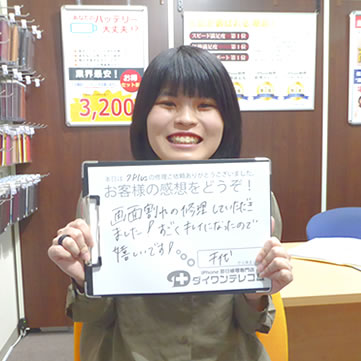 あなたの
バッテリー
大丈夫?
業界最安!
3,200
スピード満足度 第1位
第1位
サポート 第1位
本日は 7Plus の修理ご依頼ありがとうございました。
お客様の感想をどうぞ!
画面割れの修理していただき
ました!すごくキレイになったので
嬉しいです!
千代
iPhone 即日修理専門店
ダイワンテレコム